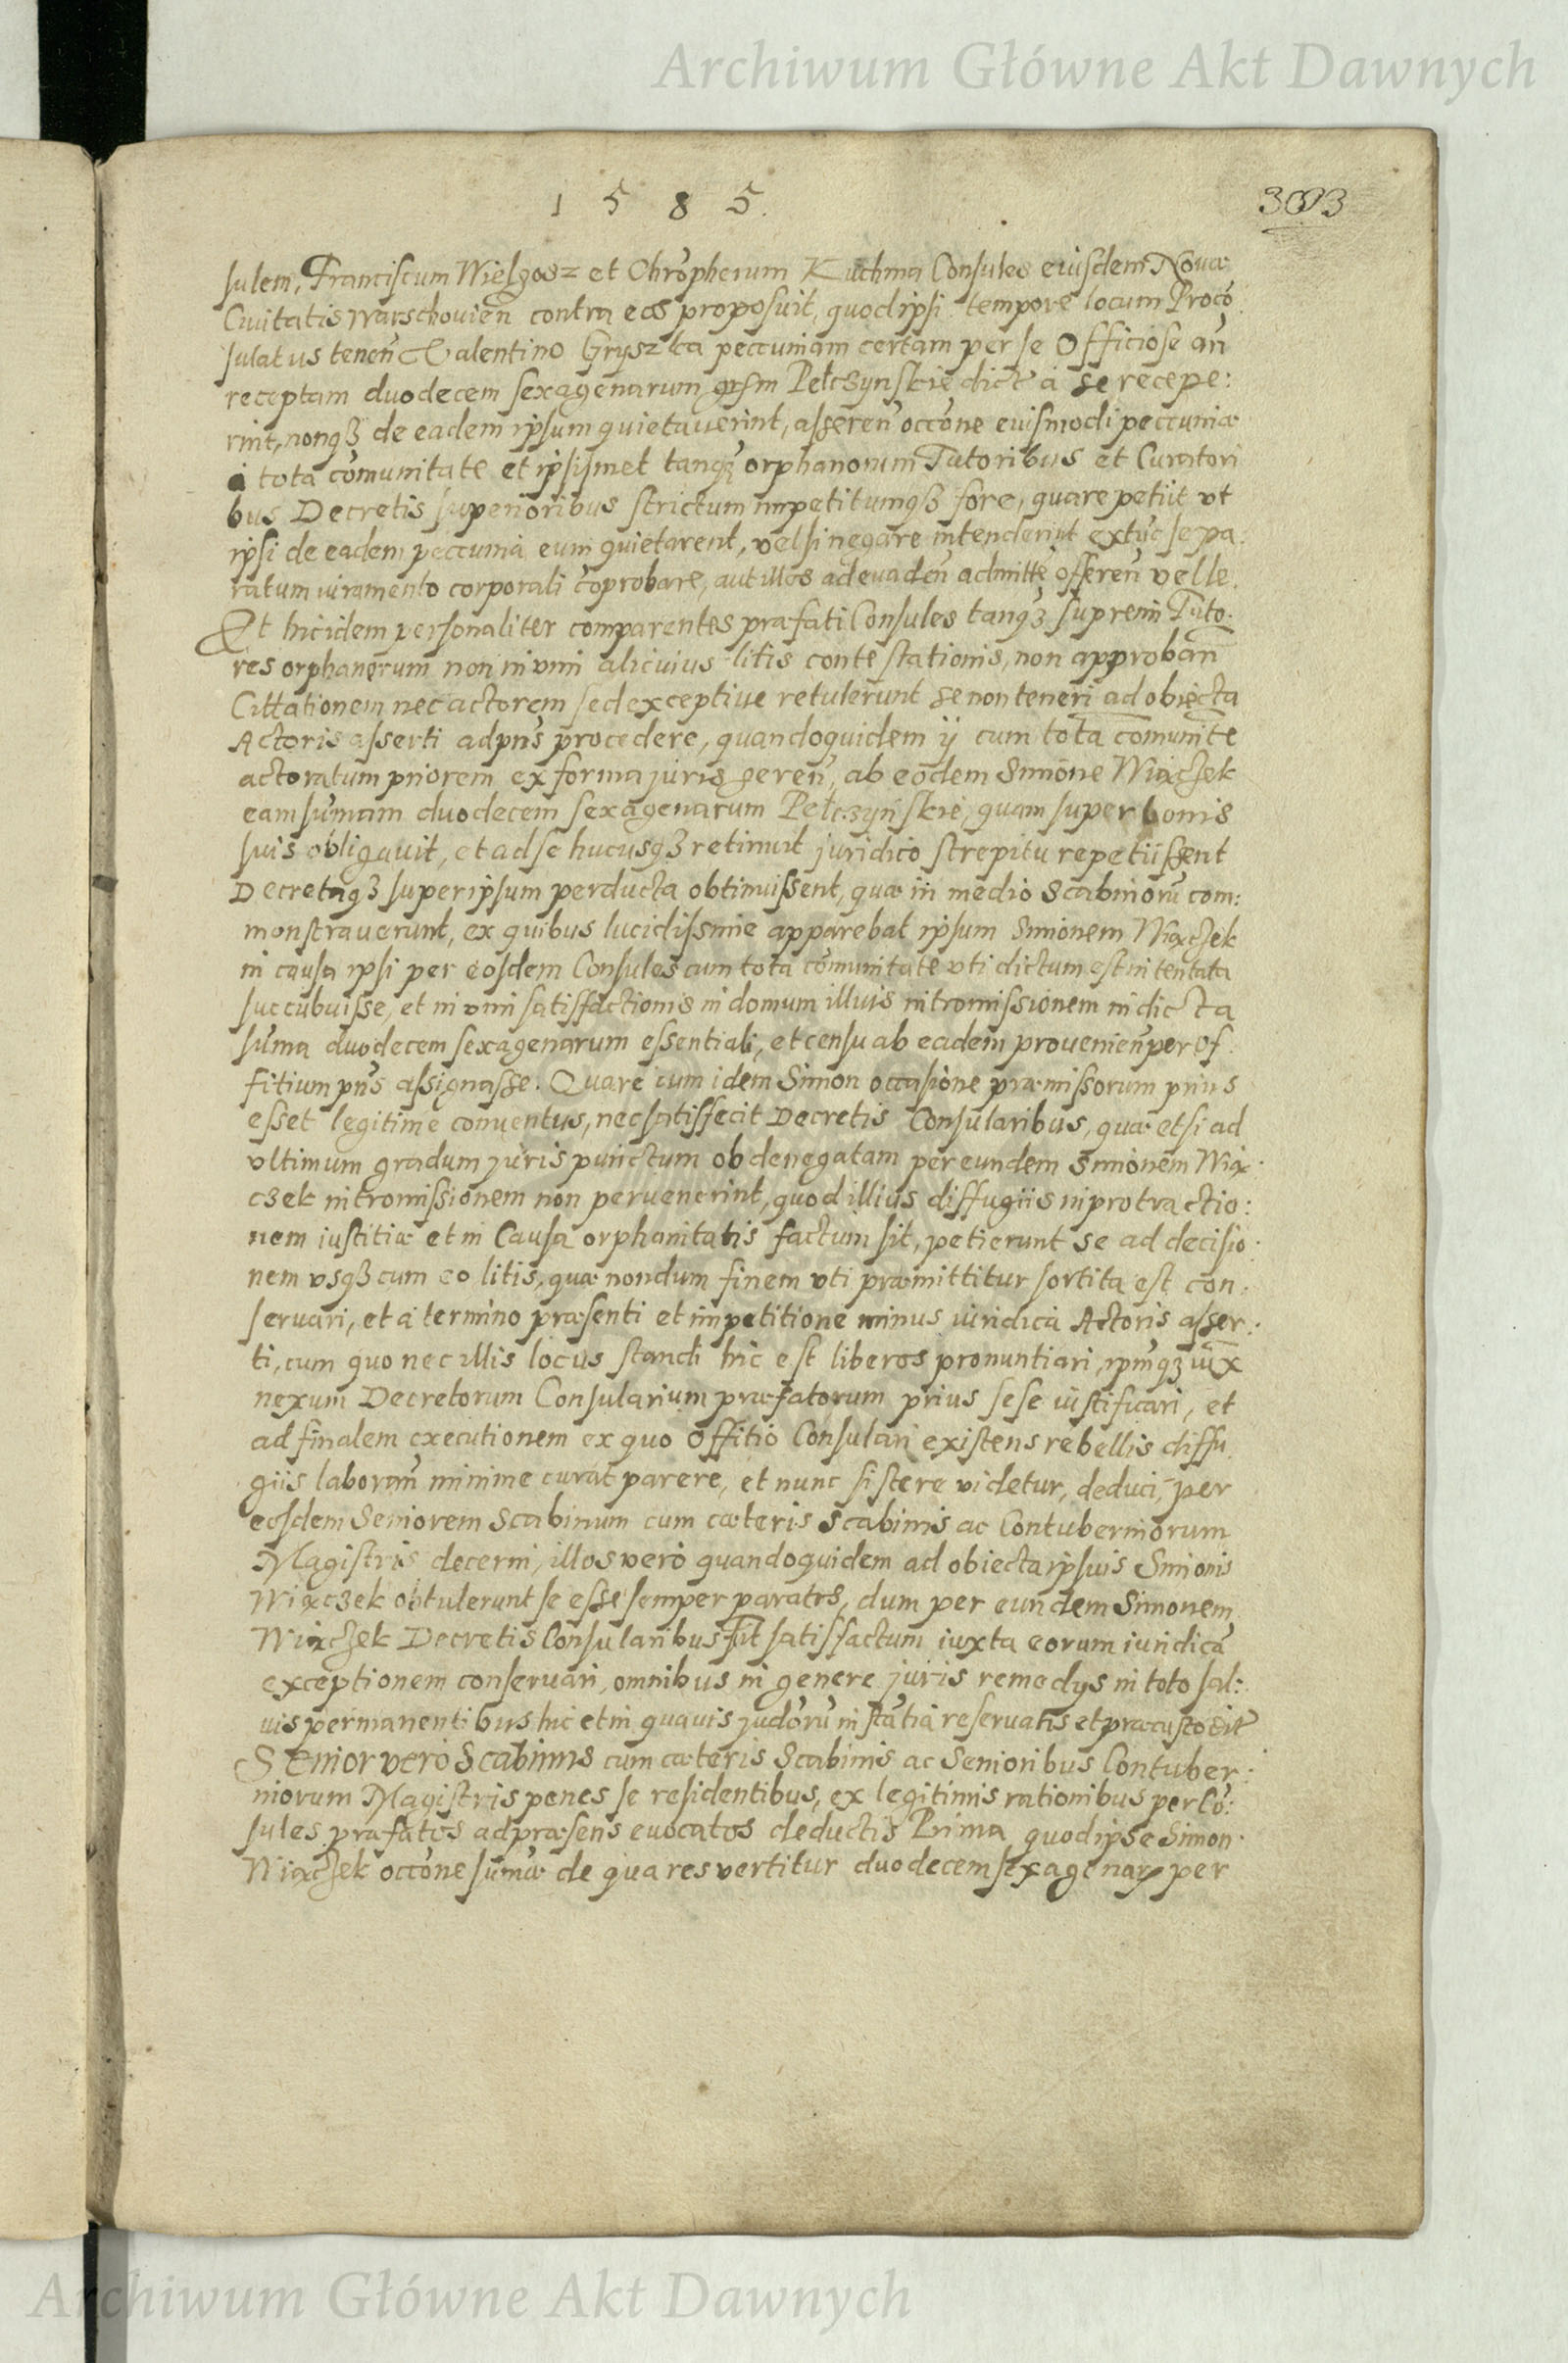 Archiwum Główne Akt Dawnych
1 5 8 5.
3093
sulem, Franciscum Wielgosz et Chr̃opherum Kuchma Consules eiusdem Novæ
Civitatis Warschovień contra eos proposuit, quod ipsi tempore locum Procõ
sulatus teneñ Valentino Gryszka peccuniam certam per se Officiose añ
receptam duodecem sexagenarum Pełczynskie dict̃ a se recepe:
rint, nonq3 de eadem ipsum quietaverint, assereñ occõne euismodi peccuniæ
á tota cõmunitate et ipsismet tanq3 orphanorum Tutoribus et Curatori
bus Decretis superioribus strictum impetitumq3 fore, quare petiit vt
ipsi de eadem peccunia eum quietarent, vel si negare intenderint extũc se pa:
ratum iuramento corporali cõprobare, aut illos ad evadeñ admittẽ offereñ velle.
Et hic idem personaliter comparentes præfati Consules tanq3 supremi Tuto:
res orphanorum non in vim alicuius litis contestationis, non approbañ
Cittationem nec actorem sed exceptive retulerunt se non teneri ad obiecta
Actoris asserti ad pñs procedere, quandoquidem ÿ cum tota comunit̃e
actoratum priorem ex forma juris gereñ, ab eodem Simone Wiączek
eam sum̃am duodecem sexagenarum Pełczyńskie, quam super bonis
suis obligavit, et ad se hucusq3 retinuit juridico strepitu repetiissent
Decretaq3 super ipsum perducta obtinuissent, quæ in medio Scabinorũ com:
monstraverunt, ex quibus lucidissime apparebat ipsum Simonem Wiączek
in causa ipsi per eosdem Consules cum tota cõmunitate vti dictum est intentata
succubuisse, et in vim satisfactionis in domum illius intromissionem in dicta
sum̃a duodecem sexagenarum essentiali, et censu ab eadem provenieñ per Of:
fitium pñs assignasse. Quare cum idem Simon occasione præmissorum prius
esset legitime conventus, nec satisfecit Decretis Consularibus, quæ etsi ad
vltimum gradum juris punctum ob denegatam per eundem Simonem Wią:
czek intromissionem non pervenerint, quod illius diffugiis in protractio:
nem iustitiæ et in Causa orphanitatis factum sit, petierunt se ad decisio:
nem vsq3 cum eo litis, quæ nondum finem vti præmittitur sortita est con:
servari, et á termino præsenti et impetitione minus iuridica Actoris asser:
ti, cum quo nec illis locus standi hic est liberos pronuntiari, ipm̃q3 iux̃
nexum Decretorum Consularium præfatorum prius sese iustificari, et
ad finalem executionem ex quo Offitio Consulari existens rebellis diffu
giis laborañ minime curat parere, et nunc sistere videtur, deduci, per
eosdem Seniorem Scabinum cum cæteris Scabinis ac Contuberniorum
Magistris decerni, illos vero quandoquidem ad obiecta ipsius Simonis
Wiączek obtulerunt se esse semper paratos, dum per eundem Simonem
Wiączek Decretis Consularibus sit satisfactum iuxta eorum iuridicã
exceptionem conservari, omnibus in genere juris remedys in toto sal:
vis permanentibus hic et in quavis judõrũ instãtia reservatis et præcustodit̃
Senior vero Scabinus cum cæteris Scabinis ac Senioribus Contuber:
niorum Magistris penes se residentibus, ex legitimis rationibus per Cõ:
sules præfatos ad præsens evocatos deductis Prima quod ipse Simon
Wiączek occõne sum̃æ de qua res vertitur duodecem sexagenar̃ per
Archiwum Główne Akt Dawnych